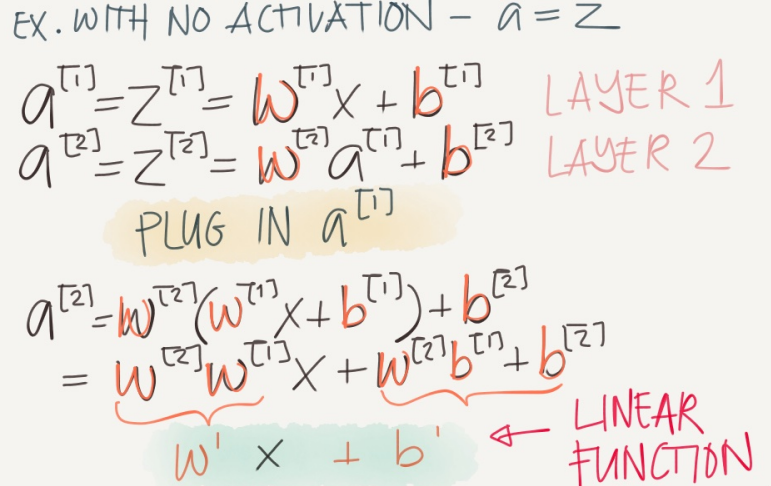 EX. WITH NO ACTIVATION - a = z
a^[1] = z^[1] = W^[1]x + b^[1] LAYER 1
a^[2] = z^[2] = W^[2]a^[1] + b^[2] LAYER 2
PLUG IN a^[1]
a^[2] = W^[2](W^[1]x + b^[1]) + b^[2]
= W^[2]W^[1]x + W^[2]b^[1] + b^[2]
W' x + b' ← LINEAR
FUNCTION